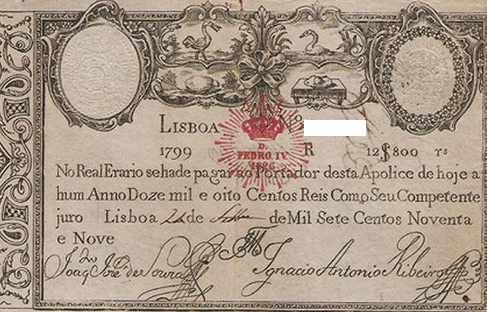 LISBOA 8
D.
PEDRO IV
1826
1799 R 12$800 rs
No Real Erario se ha de pagar ao Portador desta Apolice de hoje a
hum Anno Doze mil e oito Centos Reis Com o Seu Competente
juro Lisboa de de Mil Sete Centos Noventa
e Nove
Joaq.m Joze de Souza Ignacio Antonio Ribeiro